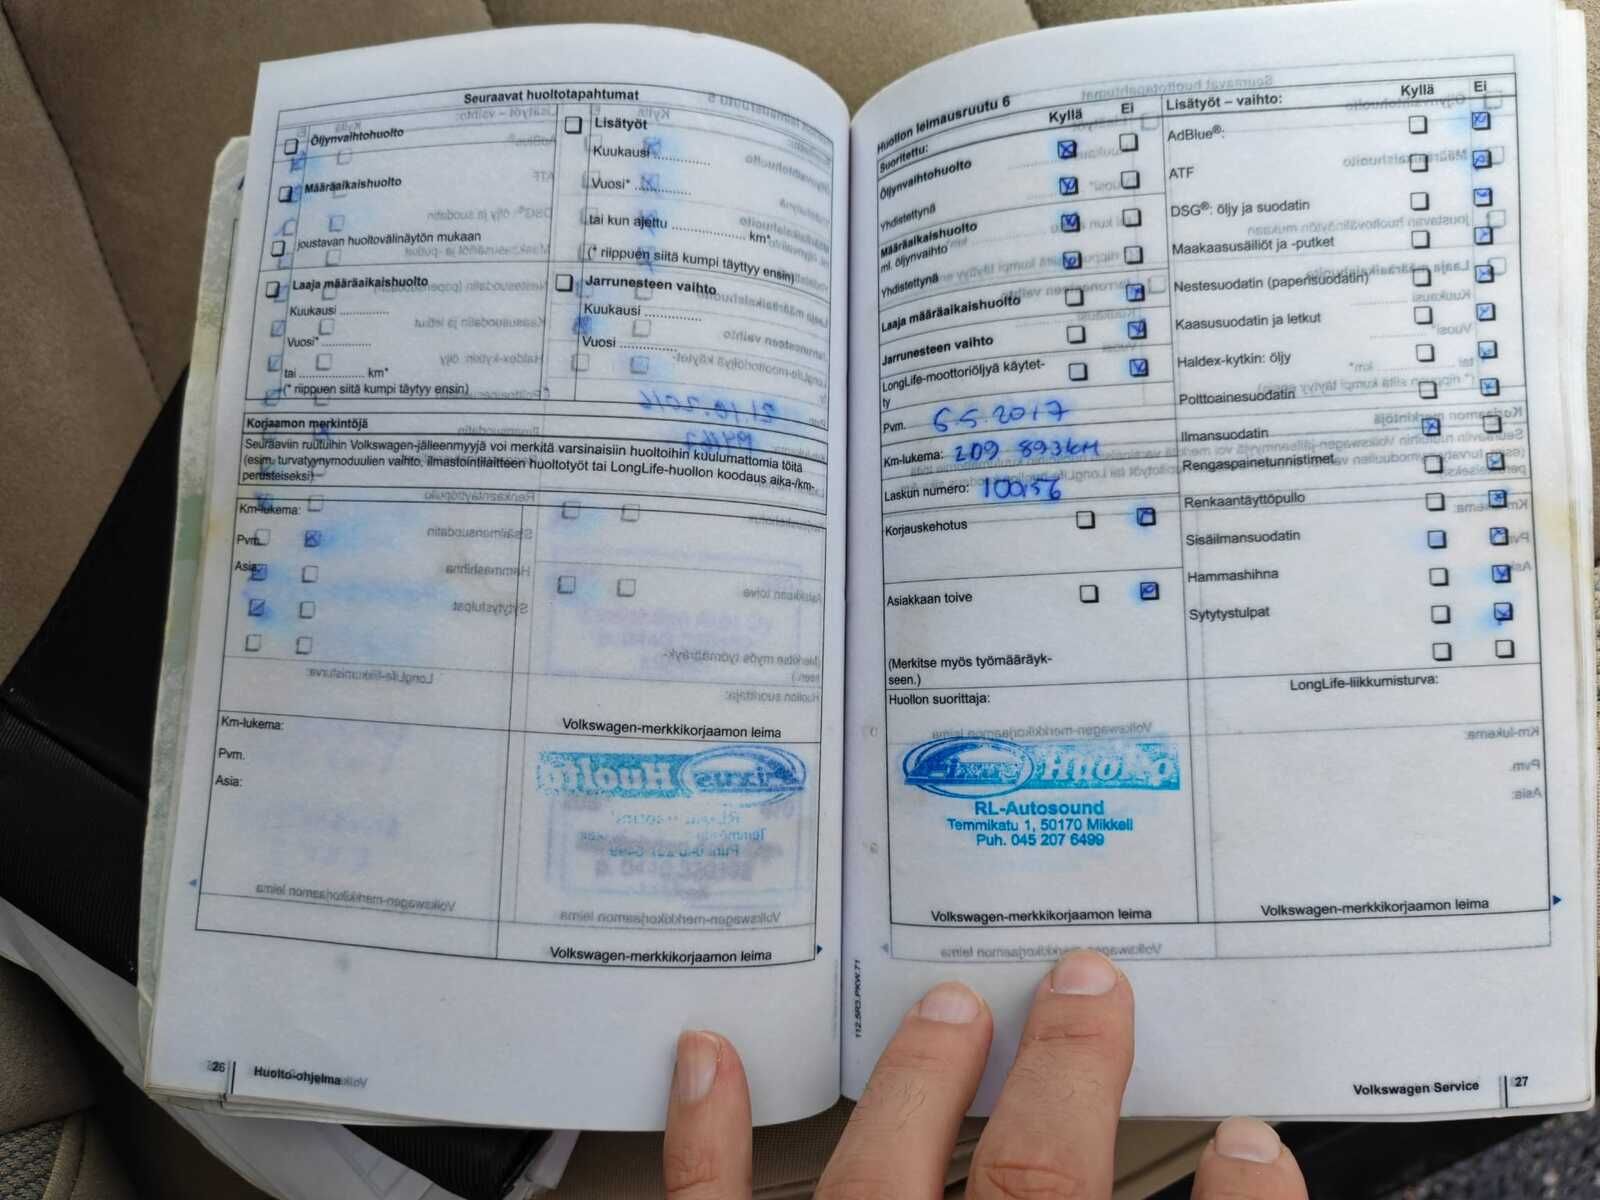 Seuraavat huoltotapahtumat
Öljynvaihtohuolto
Määräaikaishuolto
joustavan huoltovälinäytön mukaan
Lisätyöt
Kuukausi ..............
Vuosi* ..............
tai kun ajettu .................. km*
(* riippuen siitä kumpi täyttyy ensin)
Laaja määräaikaishuolto
Kuukausi ............
Vuosi* ............
tai ................ km*
(* riippuen siitä kumpi täytyy ensin)
Jarrunesteen vaihto
Kuukausi ..............
Vuosi ..............
Korjaamon merkintöjä
Seuraaviin ruutuihin Volkswagen-jälleenmyyjä voi merkitä varsinaisiin huoltoihin kuulumattomia töitä
(esim. turvatyynymoduulien vaihto, ilmastointilaitteen huoltotyöt tai LongLife-huollon koodaus aika-/km-
perusteiseksi)
Km-lukema:
Pvm.
Asia:
Volkswagen-merkkikorjaamon leima
Km-lukema:
Pvm.
Asia:
Volkswagen-merkkikorjaamon leima
26 Huolto-ohjelma
Huollon leimausruutu 6
Suoritettu: Kyllä Ei
Öljynvaihtohuolto
Yhdistettynä
Määräaikaishuolto
ml. öljynvaihto
Yhdistettynä
Laaja määräaikaishuolto
Jarrunesteen vaihto
LongLife-moottoriöljyä käytet-
ty
Pvm. 6.5.2017
Km-lukema: 209 893km
Laskun numero: 100156
Korjauskehotus
Asiakkaan toive
(Merkitse myös työmääräyk-
seen.)
Huollon suorittaja:
Huolto
RL-Autosound
Temmikatu 1, 50170 Mikkeli
Puh. 045 207 6499
Volkswagen-merkkikorjaamon leima
Lisätyöt – vaihto: Kyllä Ei
AdBlue®:
ATF
DSG®: öljy ja suodatin
Maakaasusäiliöt ja -putket
Nestesuodatin (paperisuodatin)
Kaasusuodatin ja letkut
Haldex-kytkin: öljy
Polttoainesuodatin
Ilmansuodatin
Rengaspainetunnistimet
Renkaantäyttöpullo
Sisäilmansuodatin
Hammashihna
Sytytystulpat
LongLife-liikkumisturva:
Volkswagen-merkkikorjaamon leima
112.5R3.PKW.71
Volkswagen Service 27